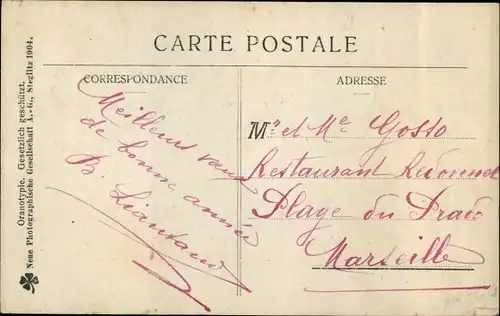 CARTE POSTALE
CORRESPONDANCE
Meilleurs vœux
de bonne année
B. Liautaud
ADRESSE
Mr et Me Gosso
Restaurant Redonnet
Plage du Prado
Marseille
Oranotypie. Gesetzlich geschützt.
Neue Photographische Gesellschaft A.-G., Steglitz 1904.